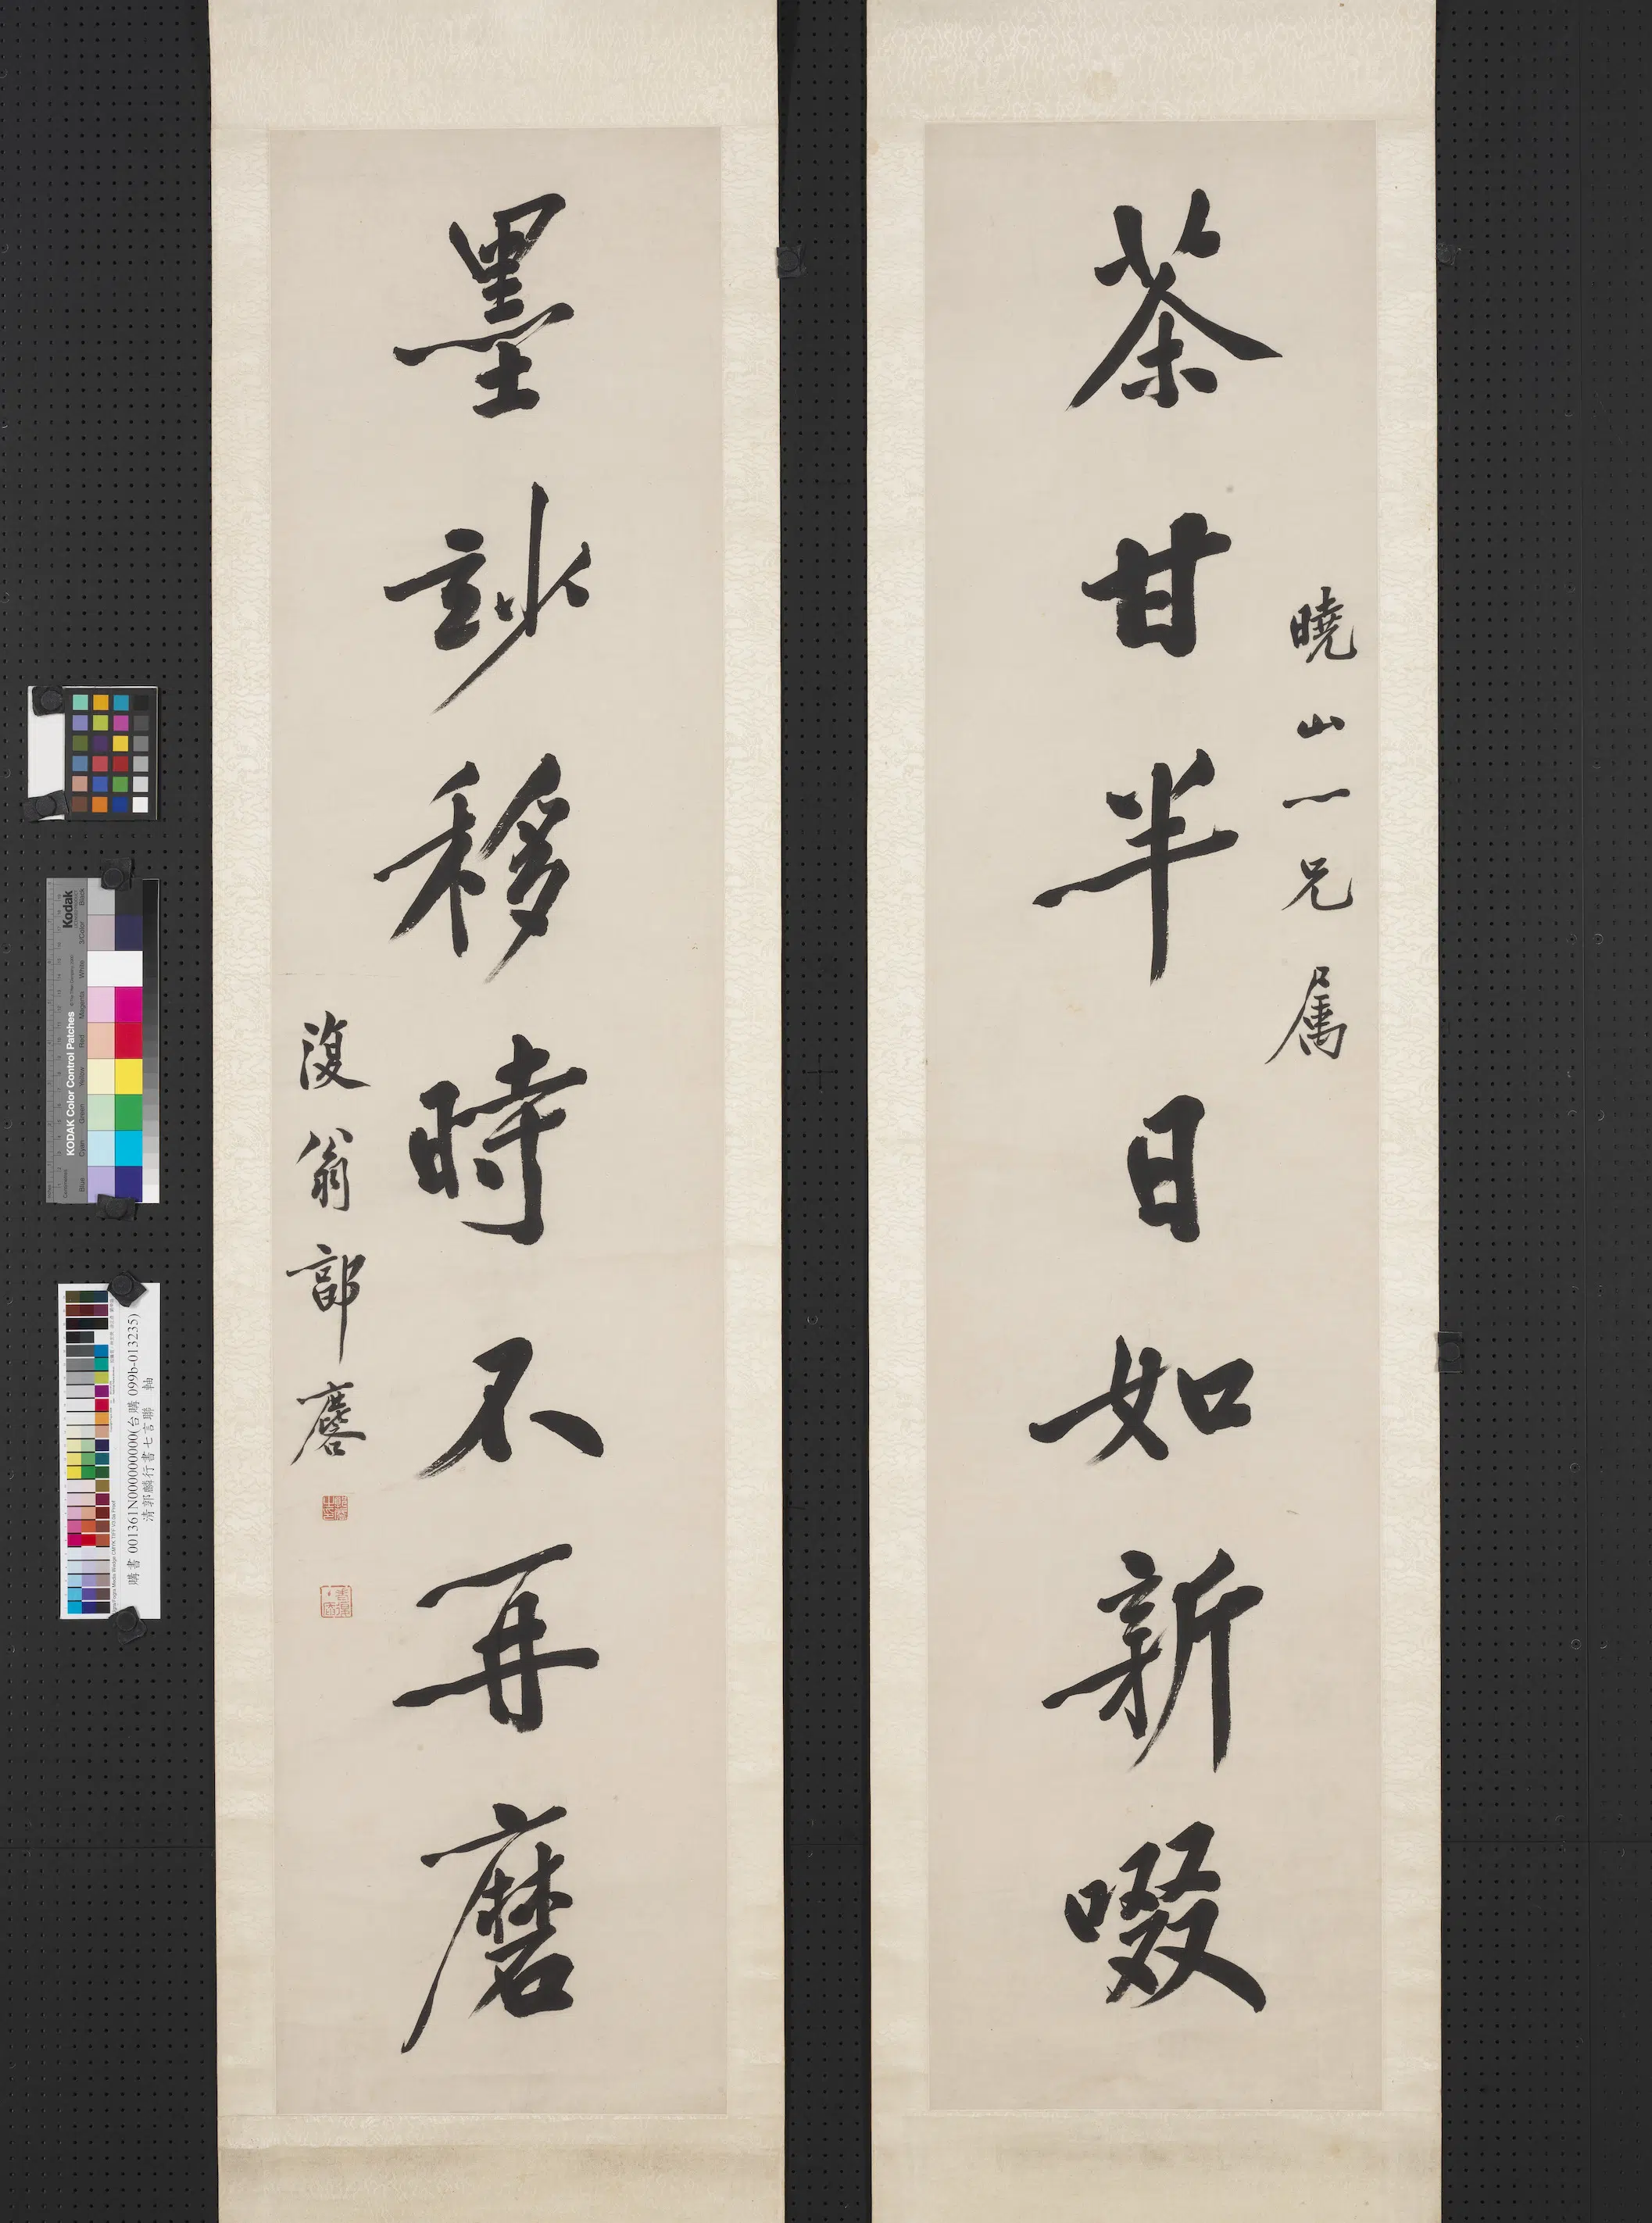 茶甘半日如新啜
曉山一兄屬
墨妙移時不再磨
復翁郭麐
購書 001361N000000000(台購 099b-013235)
清郭麟行書七言聯　軸
Kodak
KODAK Color Control Patches
Blue Cyan Green Yellow Red Magenta White 3/Color Black